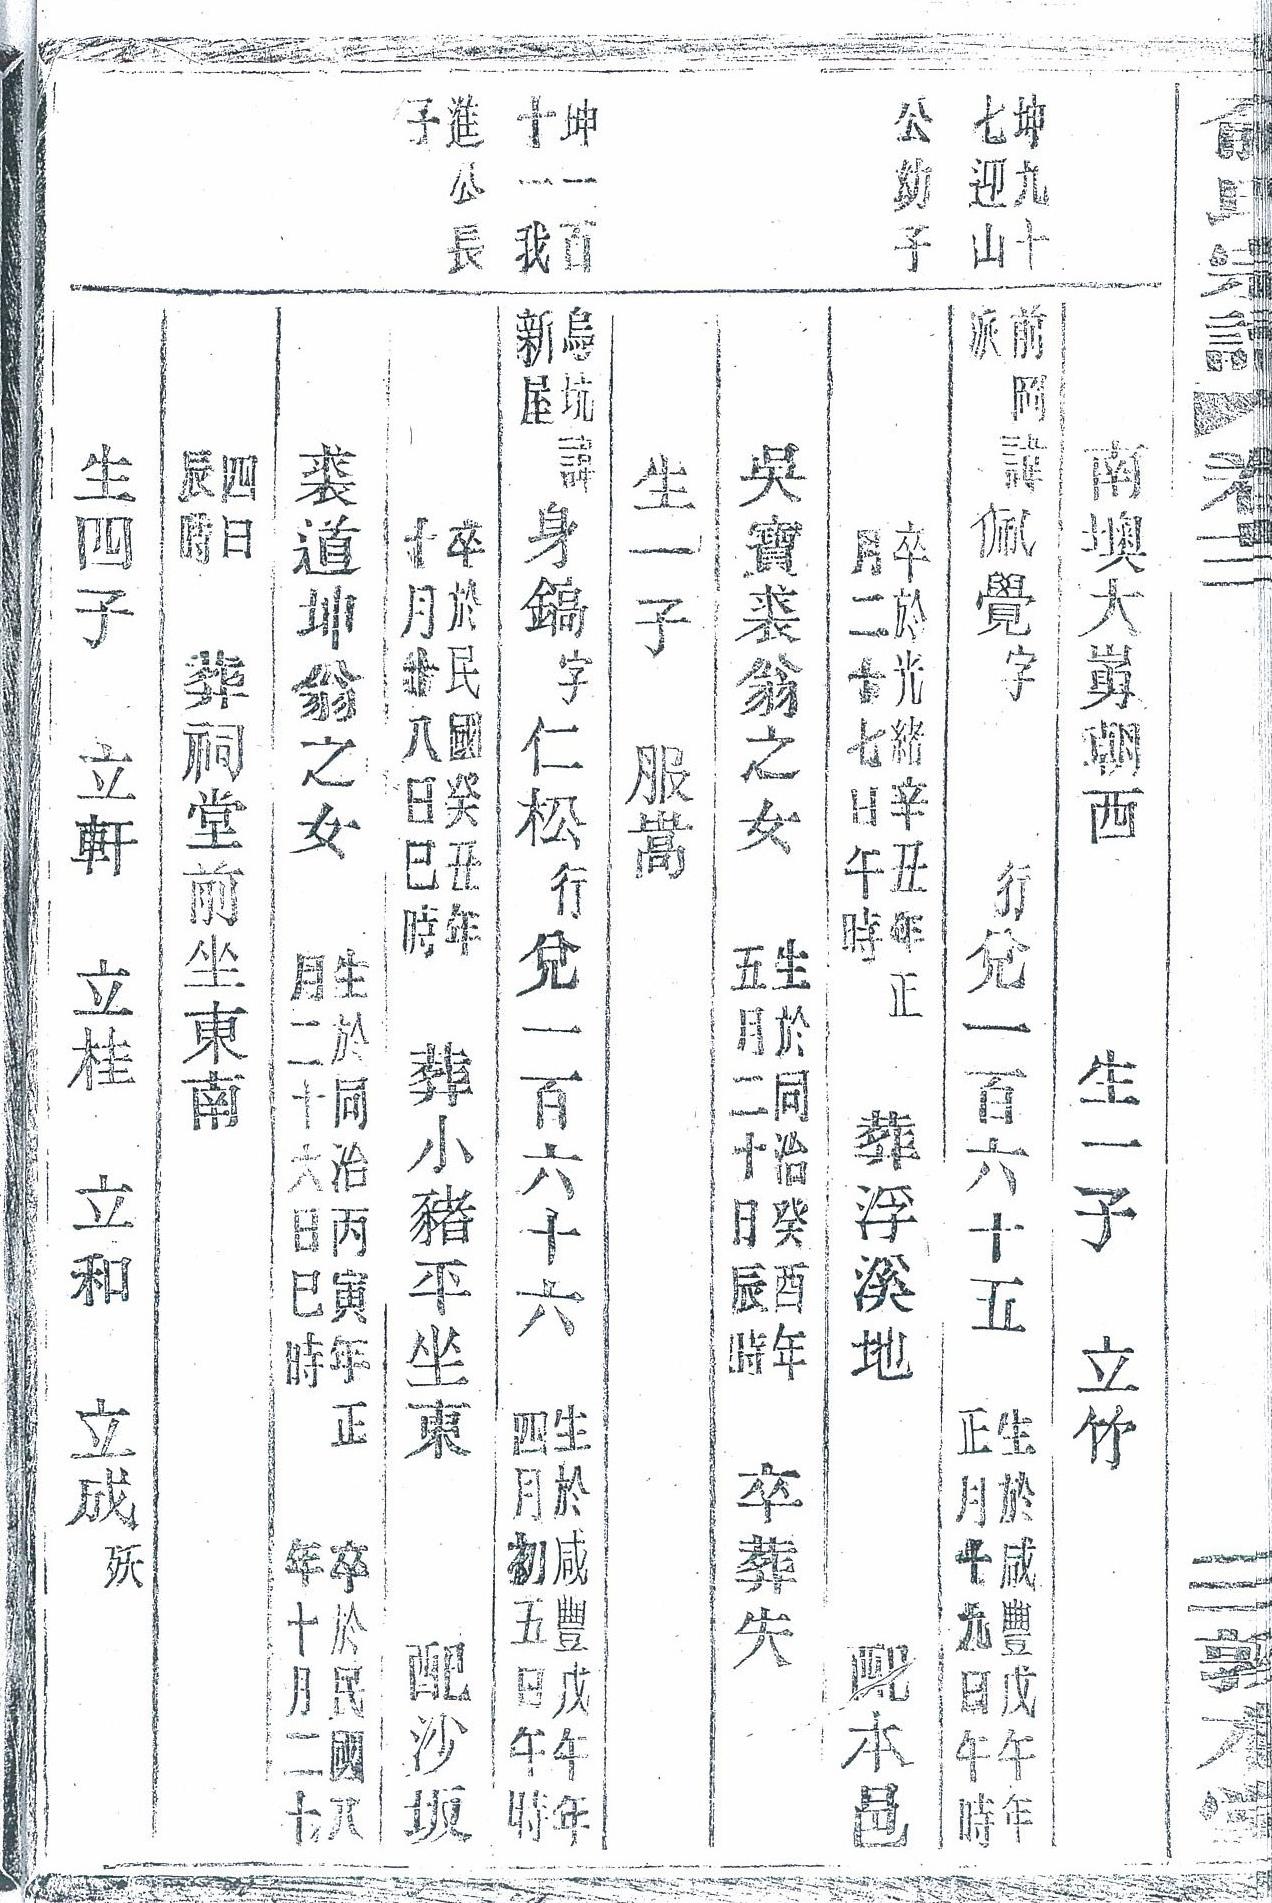 俞氏宗譜 卷二 三 敦本堂
南墺大嵙朝西 生一子 立竹
坤九十
七迎山
公幼子
前岡諱
派
佩覺字 行兌一百六十五
生於咸豐戊午年
正月十九日午時
卒於光緒辛丑年正
月二十七日午時
葬浮溪地 配本邑
吳寶裘翁之女
生於同治癸酉年
五月二十日辰時
卒葬失
生一子 服嵩
坤一百
十一我
進公長
子
烏坑諱
新屋
身鎬字仁松行兌一百六十六
生於咸豐戊午年
四月初五日午時
卒於民國癸丑年
十月廿八日巳時
葬小豬平坐東 配沙坂
裘道坤翁之女
生於同治丙寅年正
月二十六日巳時
卒於民國八
年十月二十
四日
辰時
葬祠堂前坐東南
生四子 立軒 立桂 立和 立成殀